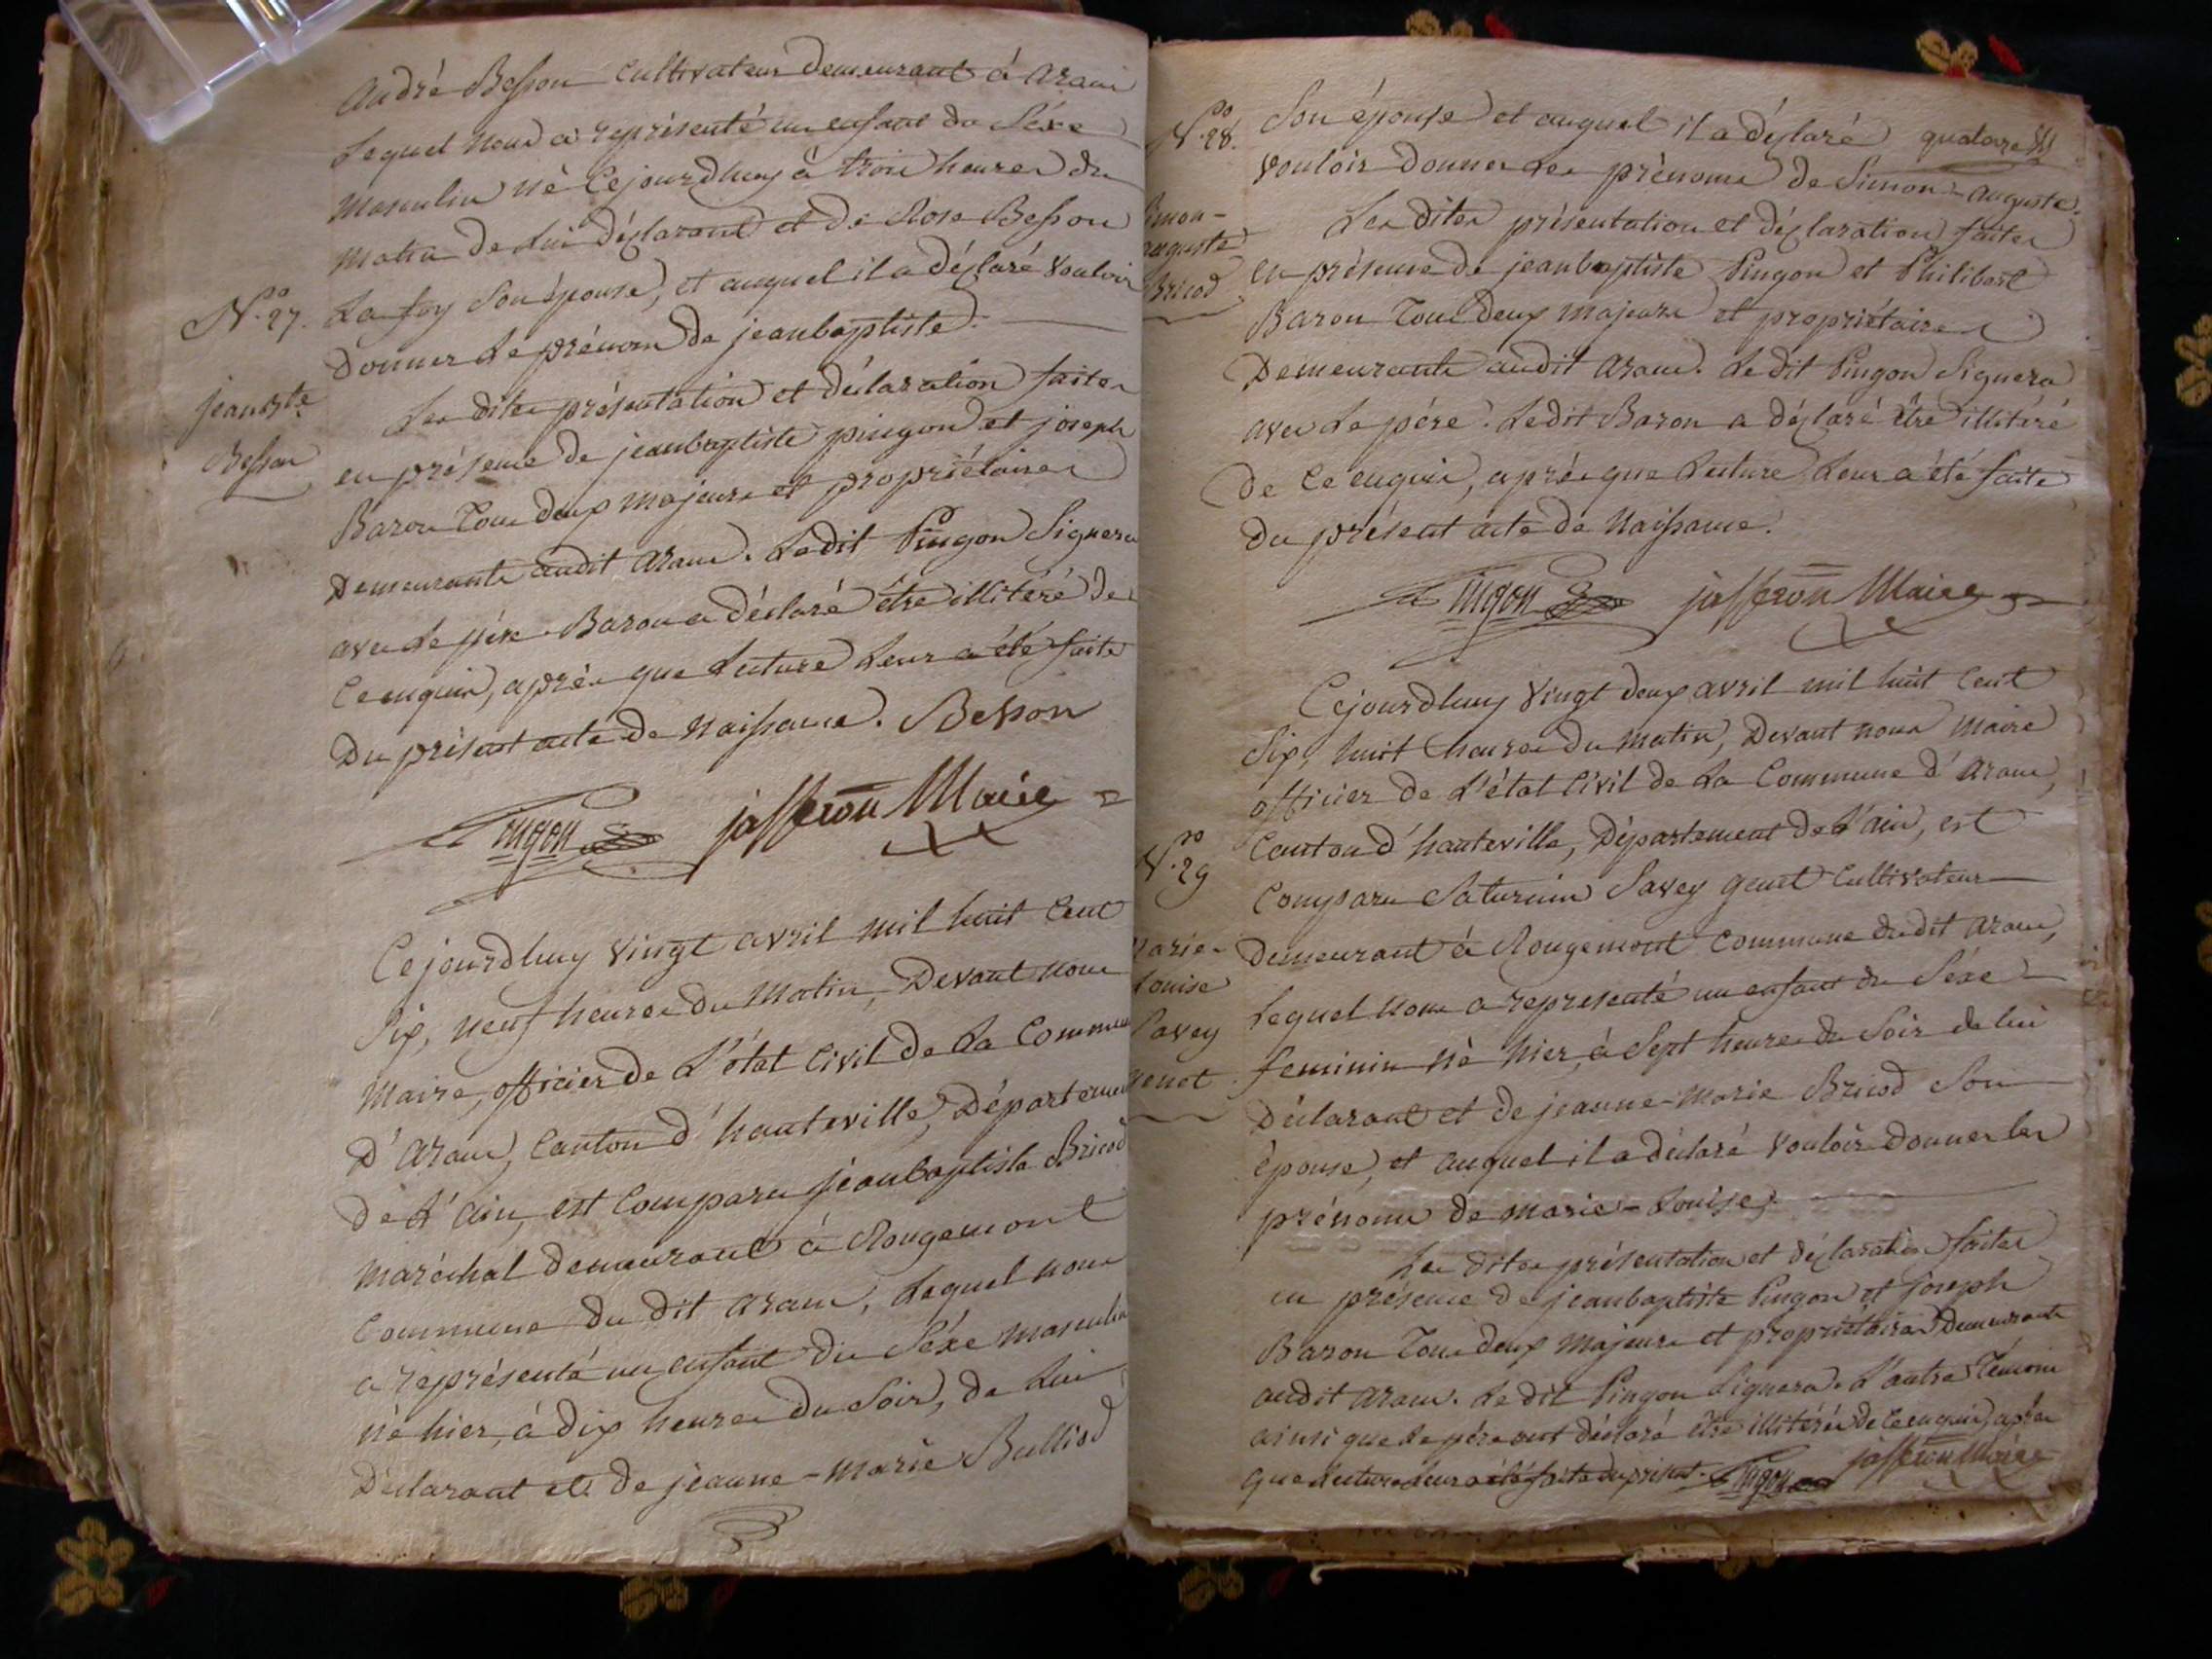 André Besson Cultivateur demeurant à aranc
Lequel nous a représenté un enfant du Séxe
Masculin né Cejourdhuy à trois heures du
Matin de Lui déclarant et de Rose Besson
N.o 27. La foy Son épouse, et auquel il a déclaré Vouloir
donner Le prénom de jeanbaptiste.
jean bte Besson
Les dites présentation et déclaration faites
en présence de jeanbaptiste pingon et joseph
Baron Tous deux majeurs et propriétaires
Demeurants audit aranc. Ledit Pingon Signera
avec Le père. Baron a déclaré être illitéré de
Ce enquis, après que Lecture Leur a été faite
Du présent acte de Naissance. Besson
Pingon jafferon Maire
Cejourdhuy Vingt avril mil huit Cent
Six, neuf heures du Matin, Devant nous
Maire, officier de L'état Civil de La Commune
D'aranc, Canton d'hauteville, Département
de L'ain, est Comparu jeanbaptiste Bricod
maréchal demeurant à Rougemont
Commune du dit aranc, Lequel nous
a représenté un enfant du Séxe masculin
né hier, à dix heures du Soir, de Lui
Déclarant et de jeanne-marie Bulliod
N.ro 28.
Simon-auguste Bricod
Son épouse et auquel il a déclaré
vouloir donner Les prénoms de Simon-auguste.
Les dites présentation et déclaration faites
en présence de jeanbaptiste Pingon et Philibert
Baron Tous deux majeurs et propriétaires
Demeurants audit aranc. Le dit Pingon Signera
avec Le père. Ledit Baron a déclaré être illitéré
de Ce enquis, après que Lecture Leur a été faite
du présent acte de Naissance.
Pingon jafferon Maire
Cejourdhuy Vingt deux avril mil huit Cent
Six, huit heures du matin, Devant nous Maire
officier de L'état Civil de La Commune d'aranc,
N.ro 29
Canton d'hauteville, Département de L'ain, est
Comparu Saturnin Savey genet Cultivateur
Marie-Louise Savey genet
Demeurant à Rougemont Commune dudit aranc,
Lequel nous a representé un enfant du Séxe
feminin né hier, à Sept heures du Soir de lui
Déclarant et de jeanne-Marie Bricod Son
épouse, et auquel il a déclaré Vouloir donner les
prénoms de marie-Louise.
Les dites présentation et déclaration faites
en présence de jeanbaptiste Pingon et joseph
Baron Tous deux Majeurs et propriétaires Demeurants
audit aranc. Le dit Pingon Signera. L'autre Témoin
ainsi que Le père ont déclaré être illitérés de Ce enquis, après
que Lecture Leur a été faite du présent. Pingon jafferon Maire